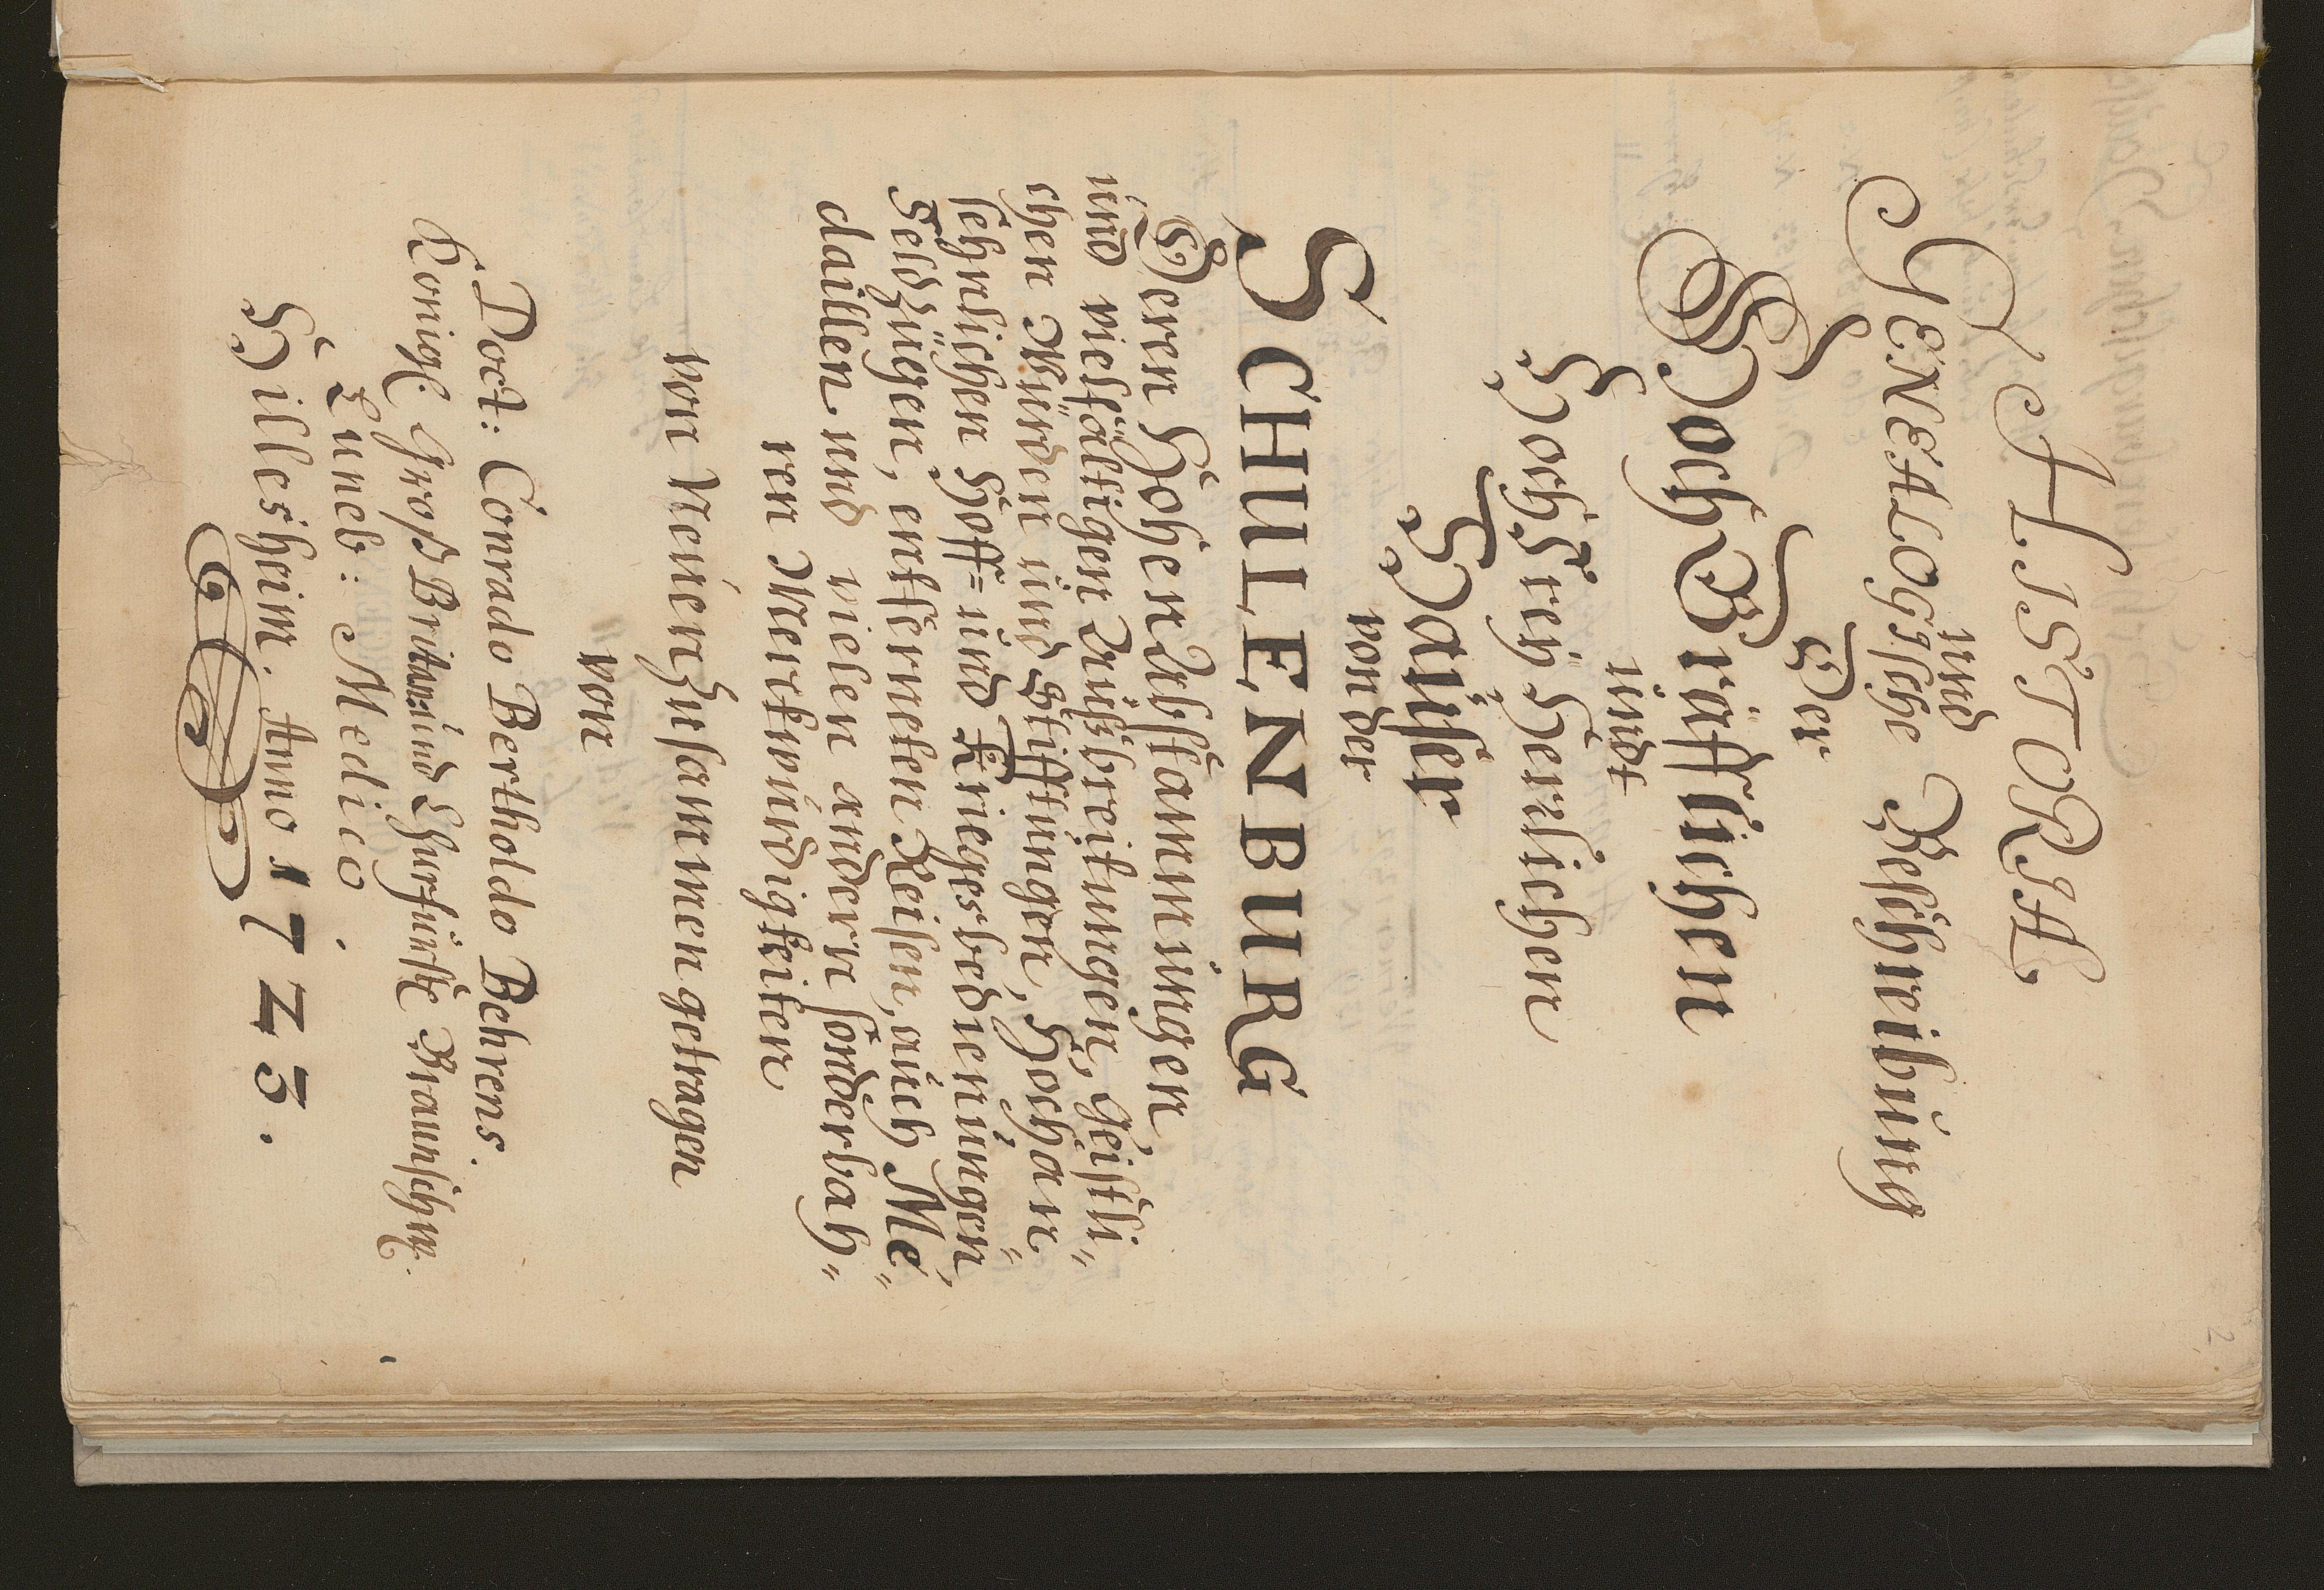 HISTORIA
und
GENEALOGische Beschreibung
Der
HochGräfflichen
undt
Hoch Freÿ Herrlichen
Haüser
von der
SCHULENBURG
Deren Hohen Abstammungen
und vielfältigen Außbreitungen, Geistli„
chen Würden und Stifftungen, Hochan„
sehnlichen Hoff= und Kriegesbedienungen,
Feldzügen, entferneten Reisen, auch Me„
daillen und vielen andern sonderbah„
ren Merckwürdigkeiten
von Neüen zusammen getragen
von
Doct: Conrado Bertholdo Behrens.
Königl. GroßBritan: und Churfürstl. Braunschw.
Luneb: Medico
Hillesheim. Anno 1723.
2